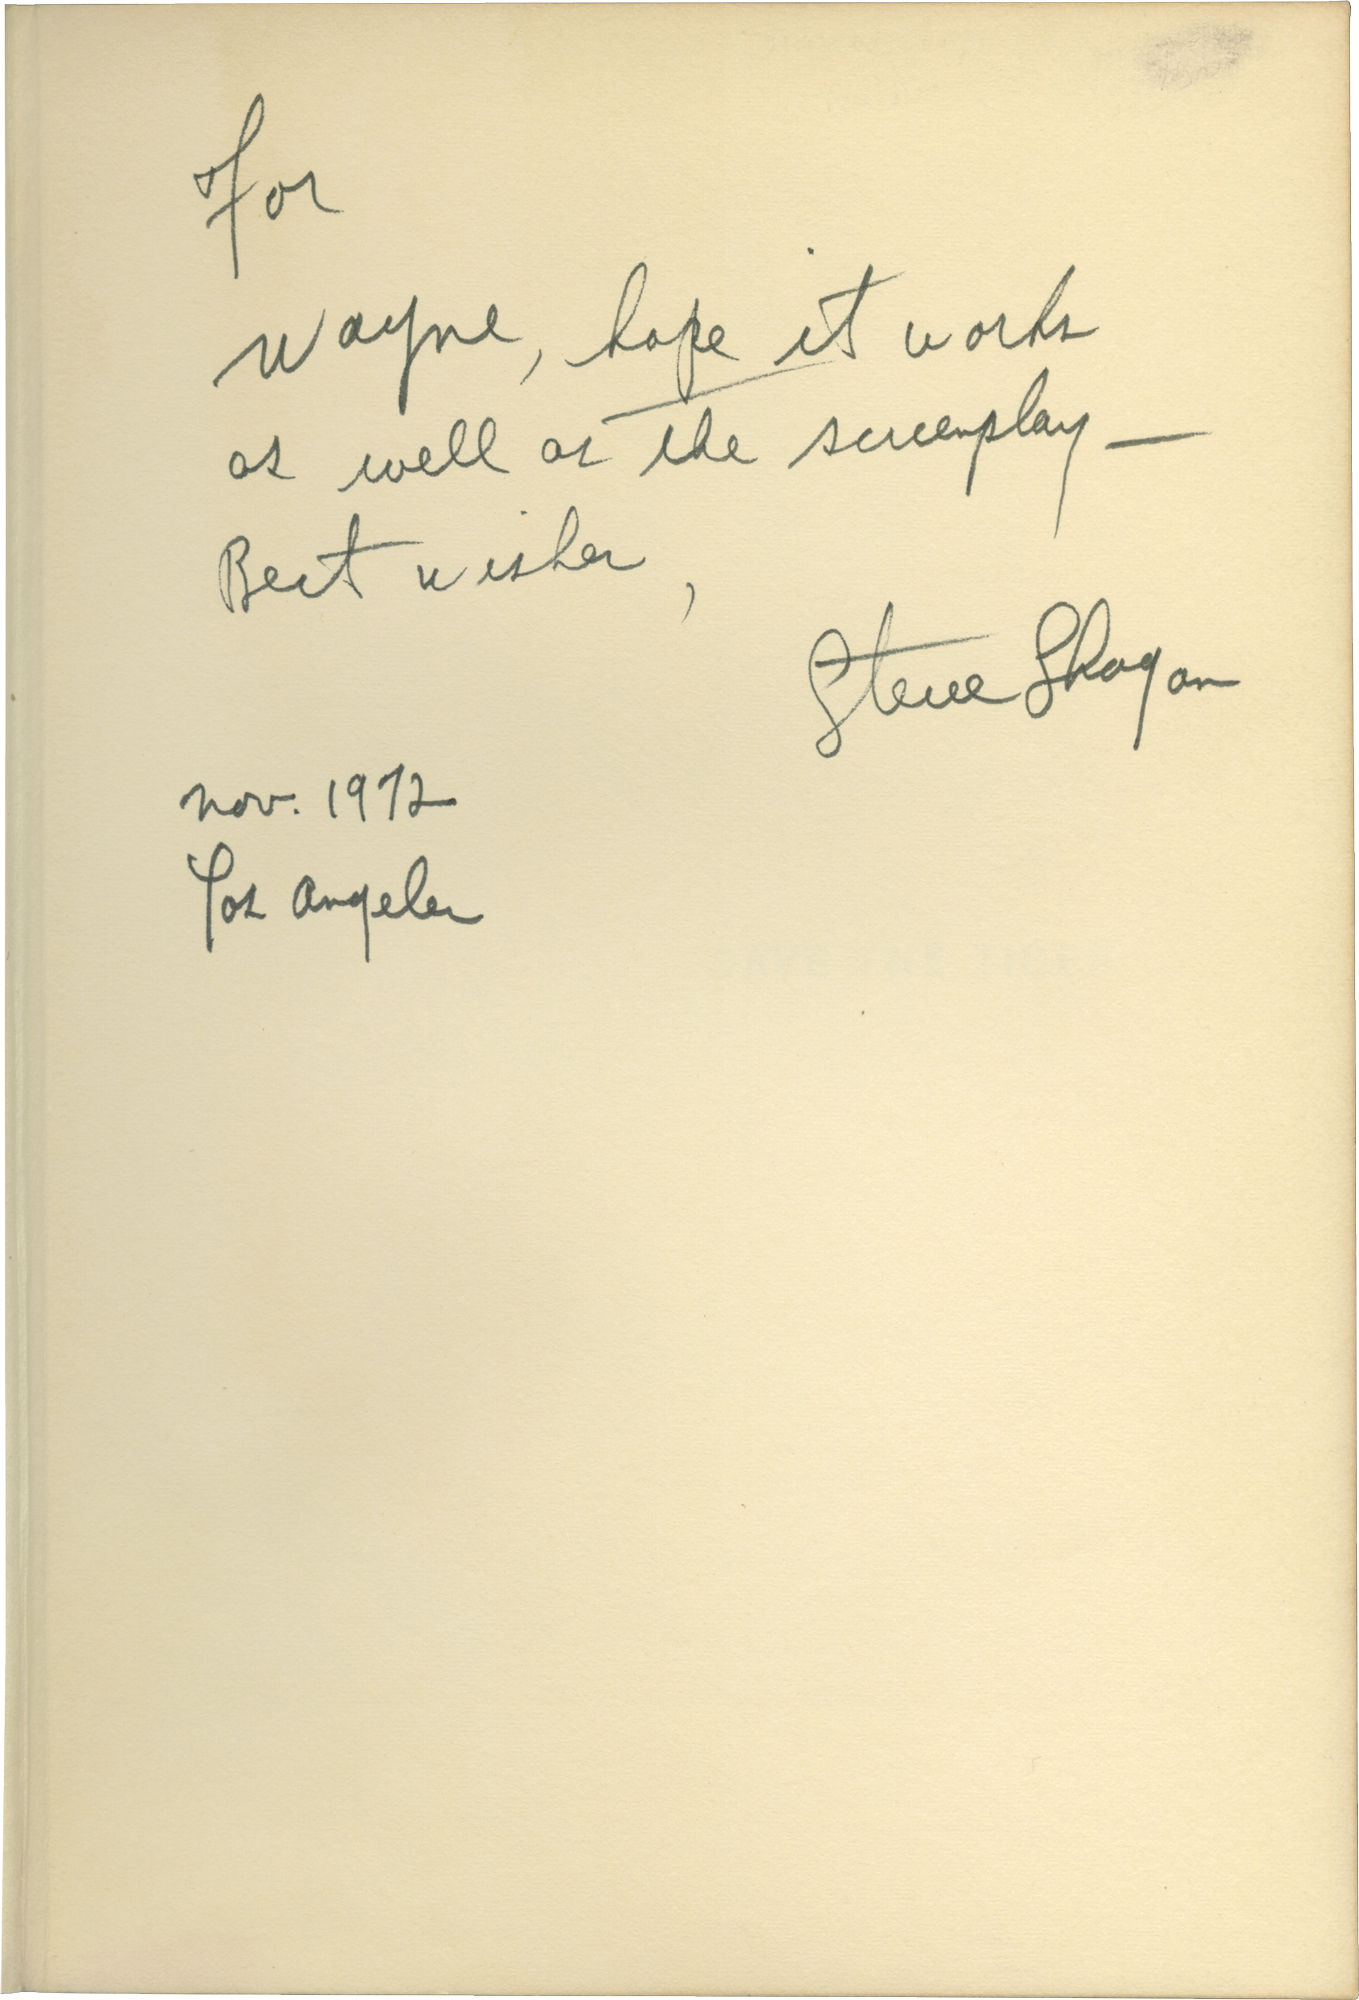 For
Wayne, hope it works
as well as the screenplay —
Best wishes,
Steve Shagan
Nov. 1972
Los Angeles